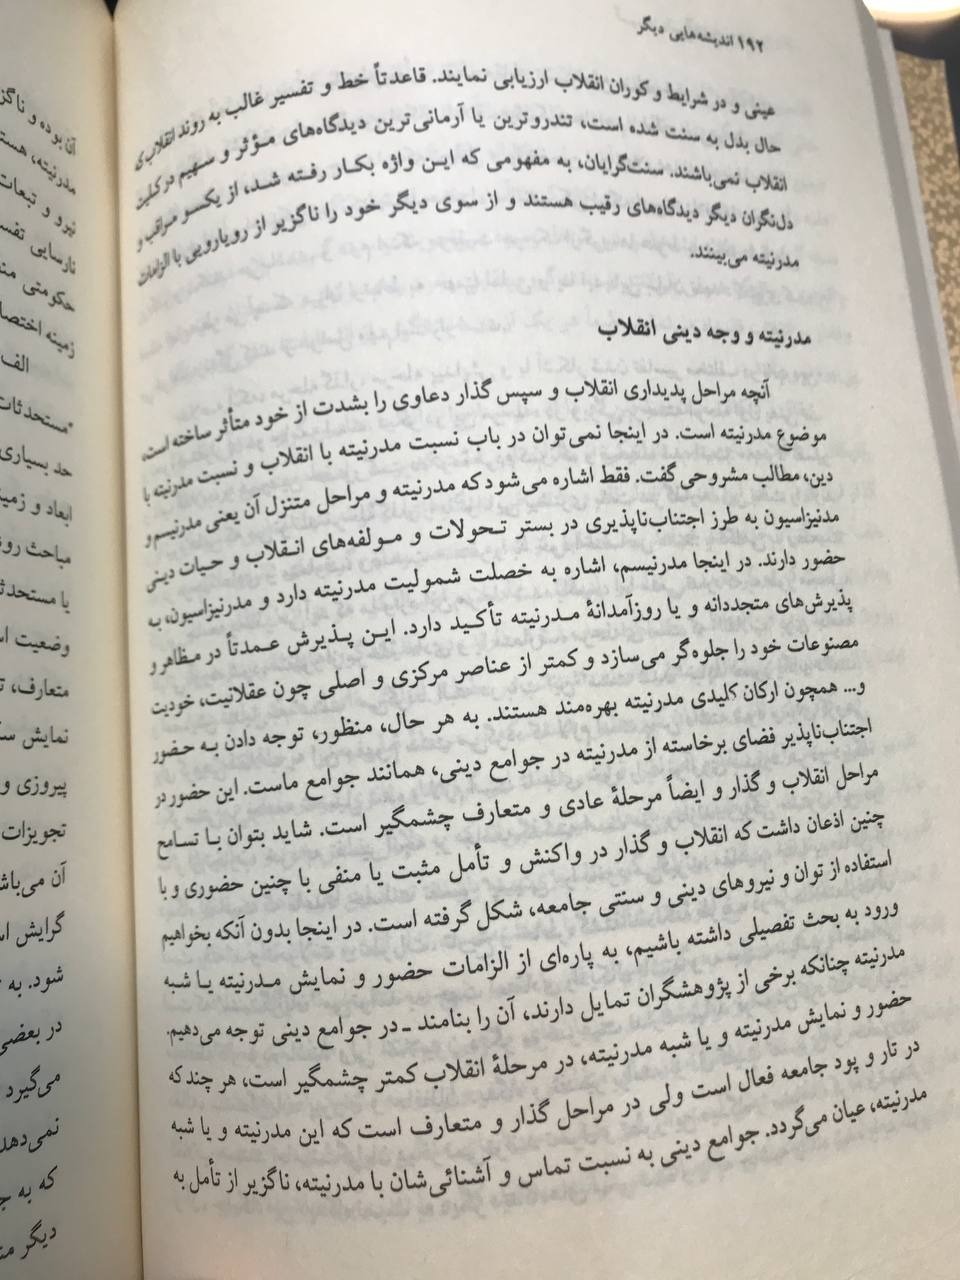 ۱۹۲ اندیشه‌هایی دیگر
عینی و در شرایط و کوران انقلاب ارزیابی نمایند. قاعدتاً خط و تفسیر غالب به روند انقلاب که
حال بدل به سنت شده است، تندروترین یا آرمانی‌ترین دیدگاه‌های مؤثر و سهیم در کلیت
انقلاب نمی‌باشند. سنت‌گرایان، به مفهومی که این واژه بکار رفته شد، از یکسو مراقب و
دل‌نگران دیگر دیدگاه‌های رقیب هستند و از سوی دیگر خود را ناگزیر از رویارویی با الزامات
مدرنیته می‌بینند.
مدرنیته و وجه دینی انقلاب
آنچه مراحل پدیداری انقلاب و سپس گذار دعاوی را بشدت از خود متأثر ساخته است،
موضوع مدرنیته است. در اینجا نمی‌توان در باب نسبت مدرنیته با انقلاب و نسبت مدرنیته با
دین، مطالب مشروحی گفت. فقط اشاره می‌شود که مدرنیته و مراحل متنزل آن یعنی مدرنیسم و
مدنیزاسیون به طرز اجتناب‌ناپذیری در بستر تحولات و مولفه‌های انقلاب و حیات دینی
حضور دارند. در اینجا مدرنیسم، اشاره به خصلت شمولیت مدرنیته دارد و مدرنیزاسیون، به
پذیرش‌های متجددانه و یا روزآمدانهٔ مدرنیته تأکید دارد. این پذیرش عمدتاً در مظاهر و
مصنوعات خود را جلوه‌گر می‌سازد و کمتر از عناصر مرکزی و اصلی چون عقلانیت، خودیت
و... همچون ارکان کلیدی مدرنیته بهره‌مند هستند. به هر حال، منظور، توجه دادن به حضور
اجتناب‌ناپذیر فضای برخاسته از مدرنیته در جوامع دینی، همانند جوامع ماست. این حضور در
مراحل انقلاب و گذار و ایضاً مرحلهٔ عادی و متعارف چشمگیر است. شاید بتوان با تسامح
چنین اذعان داشت که انقلاب و گذار در واکنش و تأمل مثبت یا منفی با چنین حضوری و با
استفاده از توان و نیروهای دینی و سنتی جامعه، شکل گرفته است. در اینجا بدون آنکه بخواهیم
ورود به بحث تفصیلی داشته باشیم، به پاره‌ای از الزامات حضور و نمایش مدرنیته یا شبه
مدرنیته چنانکه برخی از پژوهشگران تمایل دارند، آن را بنامند ـ در جوامع دینی توجه می‌دهیم.
حضور و نمایش مدرنیته و یا شبه مدرنیته، در مرحلهٔ انقلاب کمتر چشمگیر است، هر چند که
در تار و پود جامعه فعال است ولی در مراحل گذار و متعارف است که این مدرنیته و یا شبه
مدرنیته، عیان می‌گردد. جوامع دینی به نسبت تماس و آشنائی‌شان با مدرنیته، ناگزیر از تأمل به
آن بوده و
مدرنیته،
نیرو و تبعات
نارسایی
حکومتی
زمینه
الف
"مستحدثات
حد بسیاری
ابعاد و
مباحث
یا
وضعیت
متعارف،
نمایش
پیروزی و
تجویزات
آن
گرایش
شود. به
در بعضی
می‌گیرد
نمی‌دهد
که به
دیگر